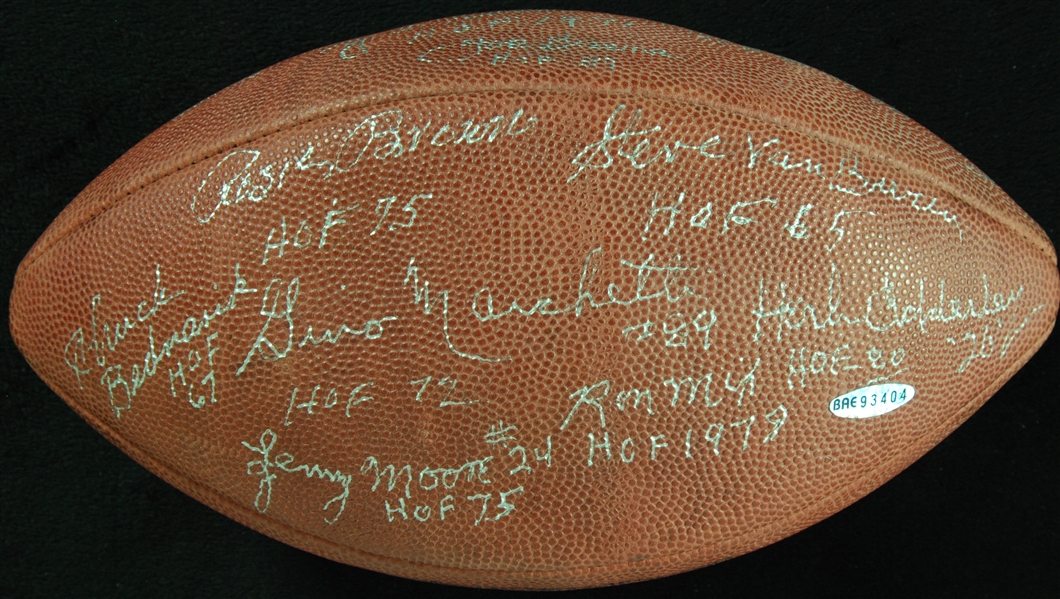 HOF 89
Rosey Brown
HOF 75
Steve Van Buren
HOF 65
Chuck
Bednarik
HOF
67
Gino Marchetti
#89
HOF 72
Herb Adderley
HOF-80
Ron Mix
HOF 1979
Lenny Moore #24
HOF 75
BAE93404